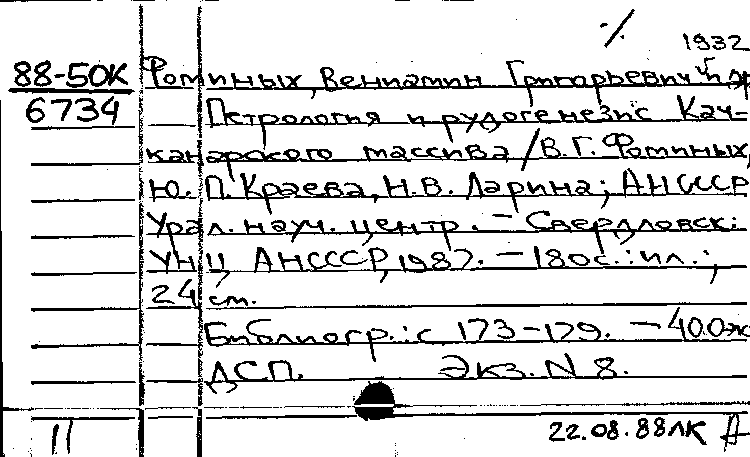 1932
88-50К Фоминых, Вениамин Григорьевич и др
6734 Петрология и рудогенезис Кач-
канарского массива / В. Г. Фоминых,
Ю. П. Краева, Н. В. Ларина; АНСССР
Урал. науч. центр. - Свердловск:
УНЦ АНСССР, 1987. - 180с.: ил.;
24 см.
Библиогр.: с 173-179. - 400эк
ДСП. Экз. N 8.
11 22.08.88ЛК